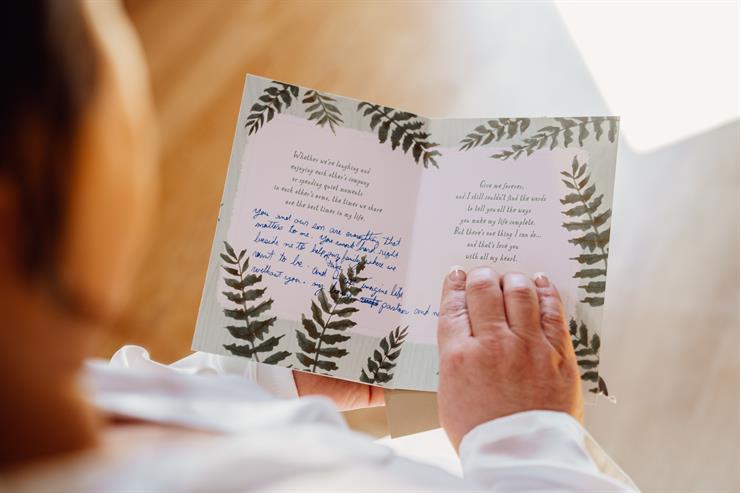 Whether we're laughing and
enjoying each other's company
or spending quiet moments
in each other's arms, the times we share
are the best times in my life.
You and our son are everything that
matters to me. You work hard right
beside me to help our family where we
want to be. And I can't imagine life
without you. my partner and
Give me forever,
and I still couldn't find the words
to tell you all the ways
you make my life complete.
But there's one thing I can do...
and that's love you
with all my heart.